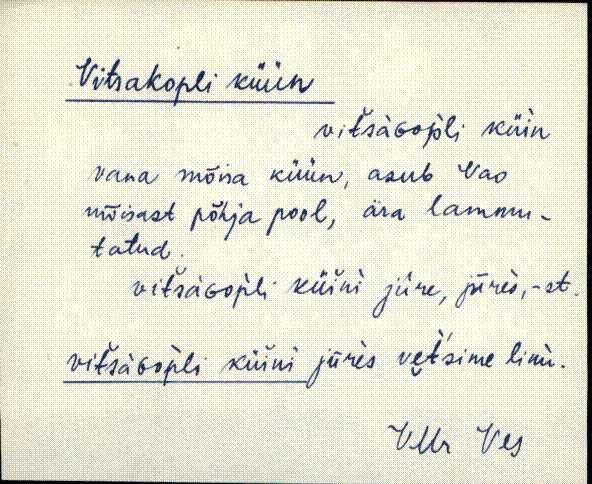 Vitsakopli küün
vit̆sàɢop̀li küìn
vana mõisa küün, asub Vao
mõisast põhja pool, ära lammu-
tatud.
vit̆sàɢop̀li küi̮nì jüre, jürès, -st.
vit̆sàɢop̀li küi̮nì jürès vet̆'sime linù.
VMr Ves